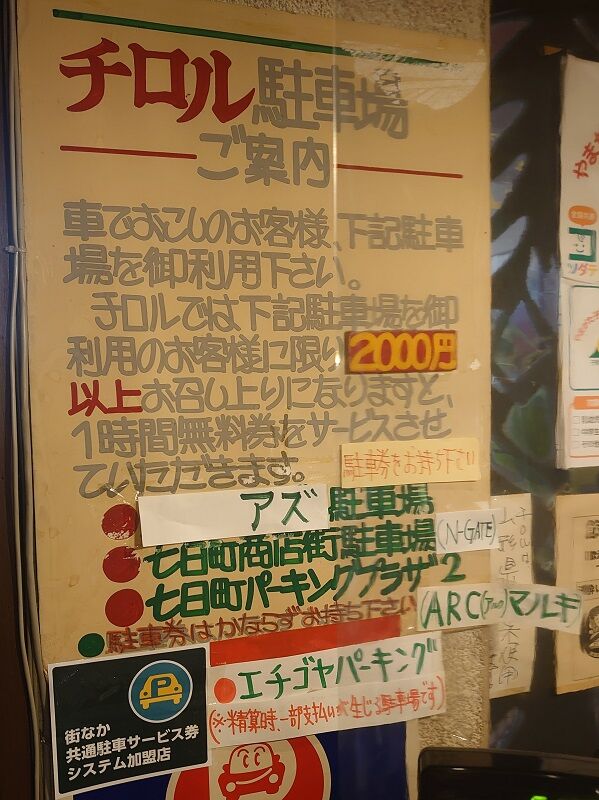 チロル駐車場
ご案内
車でおこしのお客様、下記駐車
場を御利用下さい。
チロルでは下記駐車場を御
利用のお客様に限り2000円
以上お召し上りになりますと、
1時間無料券をサービスさせ
ていただきます。
駐車券をお持ち下さい
●アズ駐車場
●七日町商店街駐車場(N-GATE)
●七日町パーキングプラザ2
(ARC(アルク)マルキ)
●駐車券はかならずお持ち下さい
●エチゴヤパーキング
(※精算時、一部支払いが生じる駐車場です)
P
街なか
共通駐車サービス券
システム加盟店